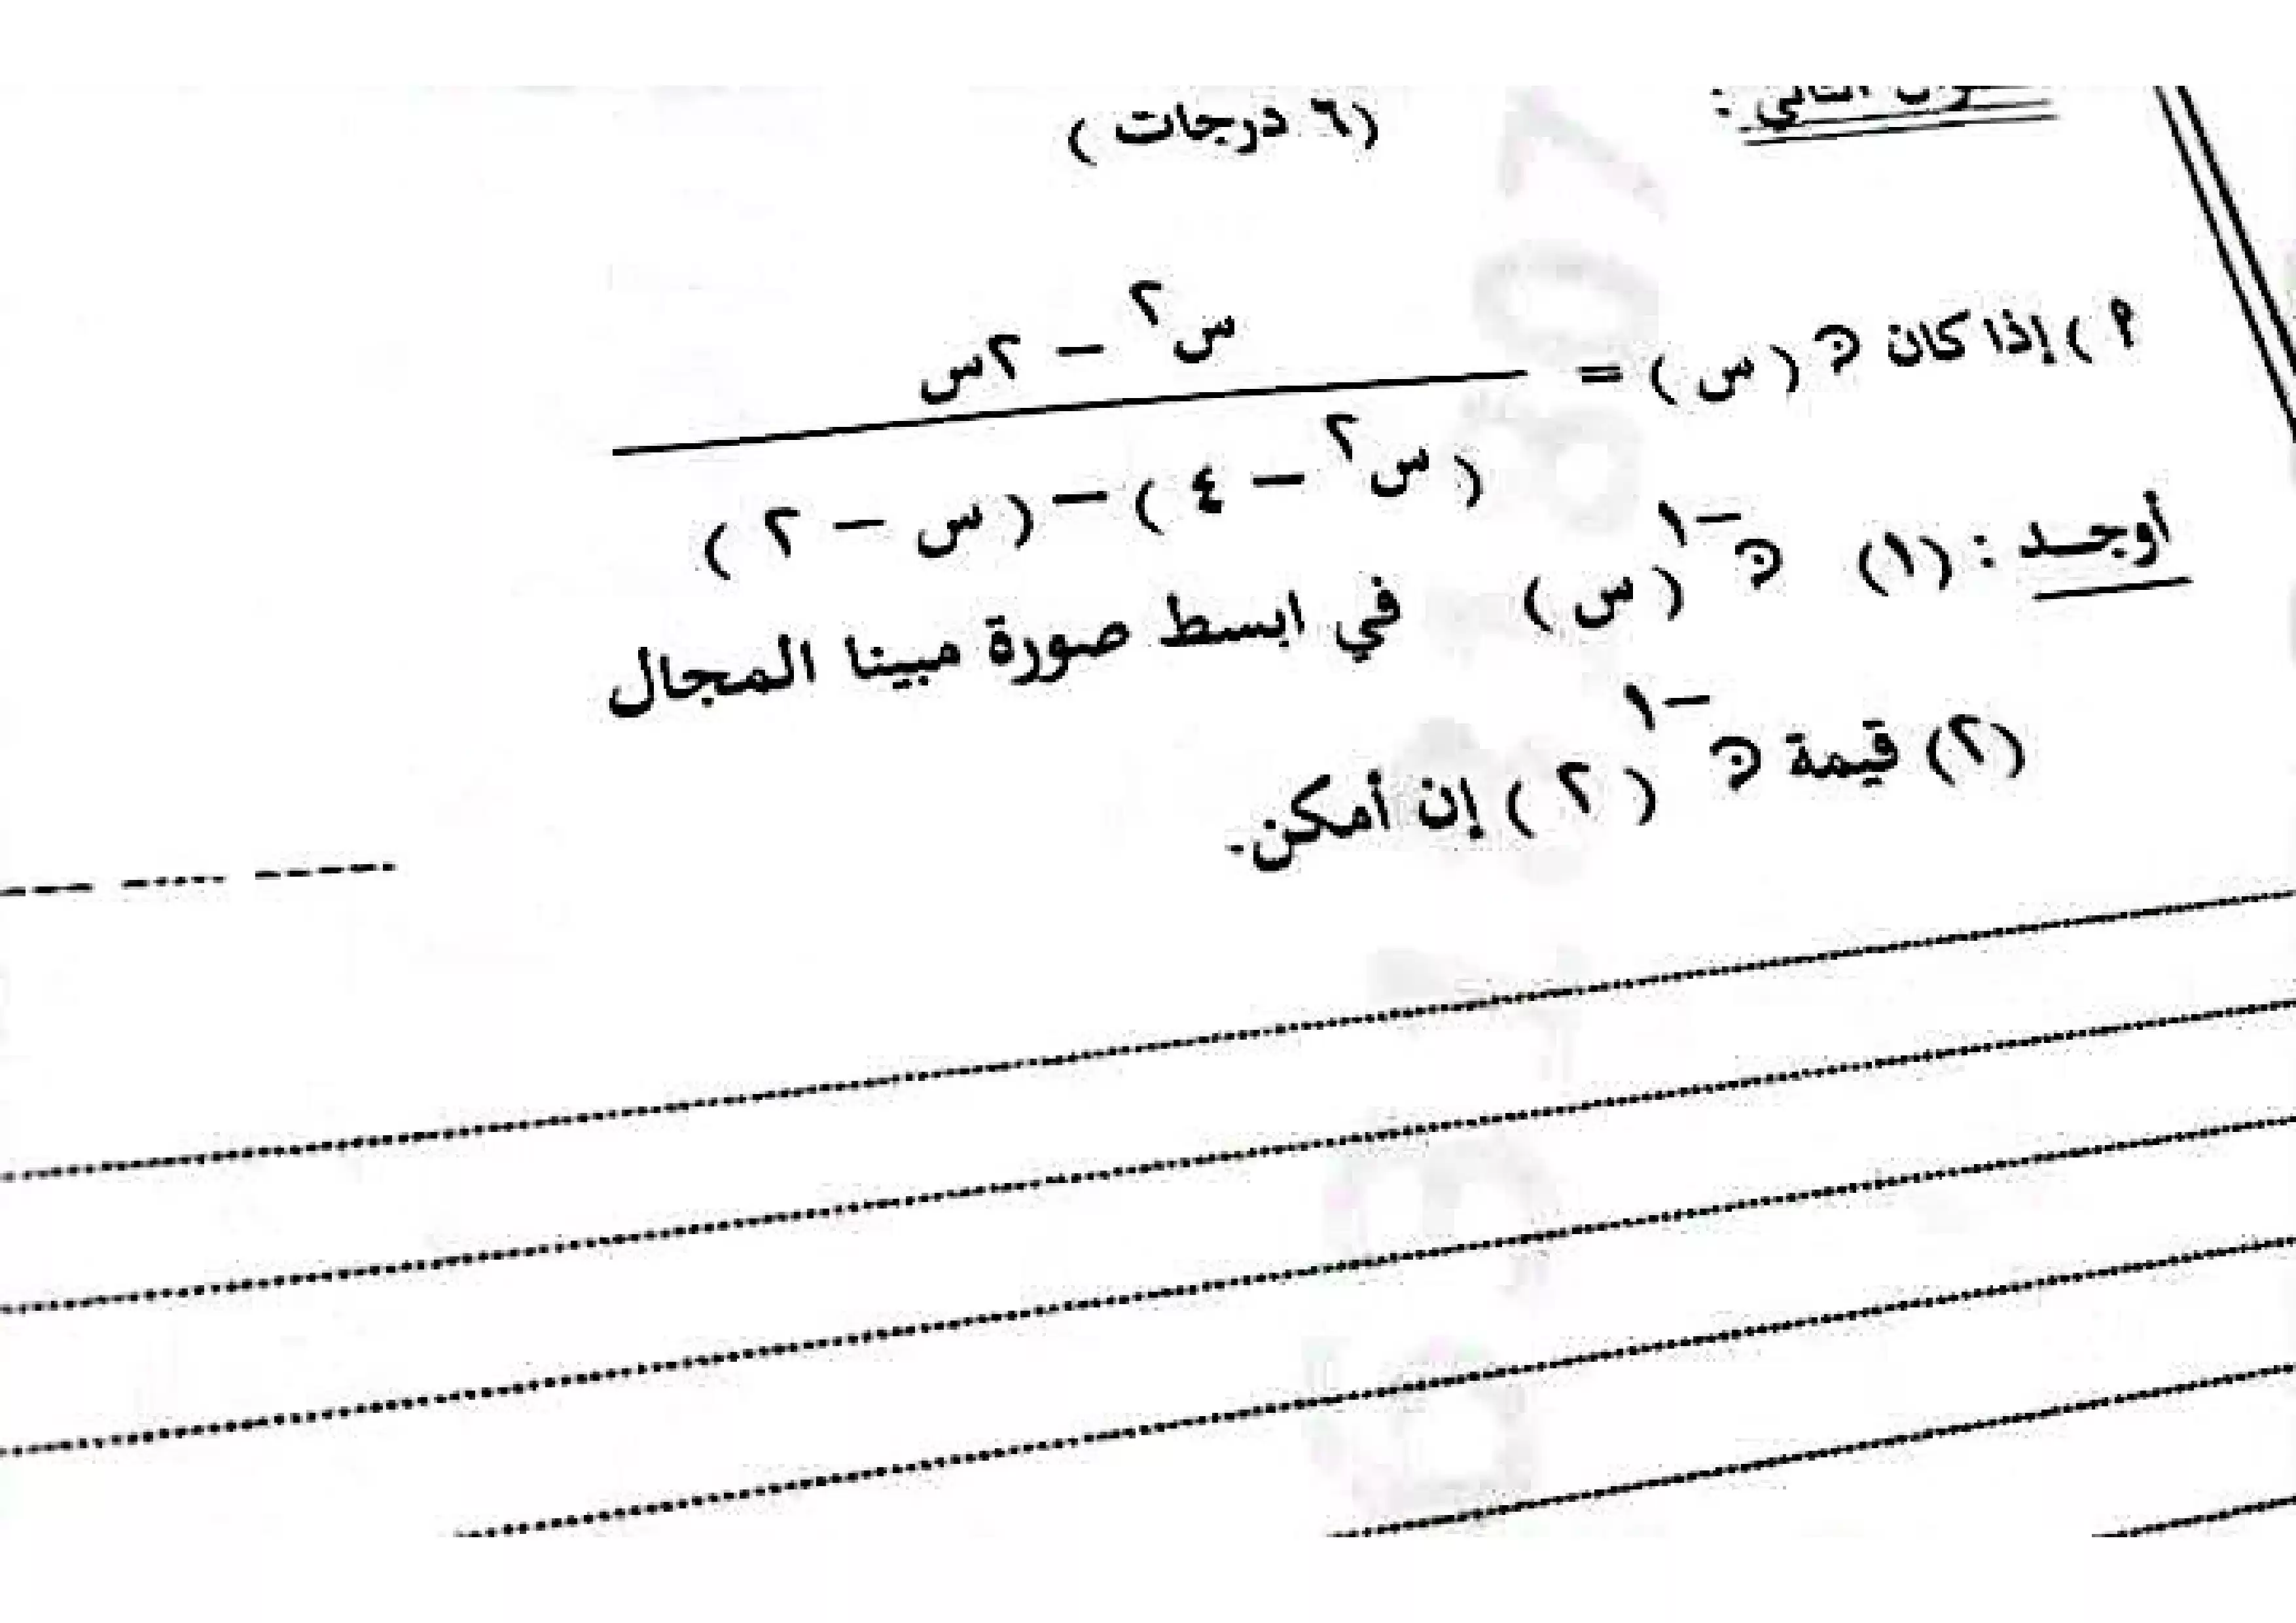 (٦ درجات)
التالي :
٩) إذا كان ن(س) = س٢ - ٢س
(س٢ - ٤) - (س - ٢)
أوجد : (١) ن-١(س) في ابسط صورة مبينا المجال
(٢) قيمة ن-١(٢) إن أمكن.